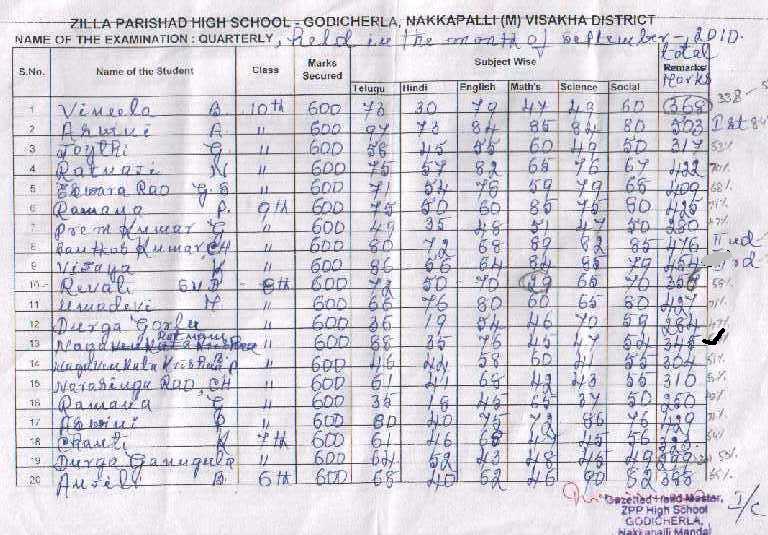 ZILLA PARISHAD HIGH SCHOOL - GODICHERLA, NAKKAPALLI (M) VISAKHA DISTRICT
NAME OF THE EXAMINATION : QUARTERLY, held in the month of September - 2010.
S.No. Name of the Student Class Marks Secured Subject Wise total Remarks Marks
Telugu Hindi English Math's Science Social
1 Vineela B. 10th 600 73 30 79 47 49 60 368 338
2 A. " 600 97 73 84 85 84 80 503 Ist 84
3 Joythi G. " 600 58 45 55 60 49 50 317 53%
4 Ratnaji N " 600 75 57 82 65 76 67 422 70%
5 Eswara Rao G.S " 600 71 54 76 59 79 65 409 68%
6 Ramana P. 9th 600 75 50 60 85 75 80 425 71%
7 Prem Kumar G " 600 49 35 48 51 47 50 280 47%
8 Kumar, CH " 600 80 72 68 89 82 85 476 IInd
9 Vijaya K " 600 86 66 64 84 85 79 454
10 Revali 8th 600 72 50 70 65 70 356 59%
11 Umadevi " 600 66 76 80 60 65 80 427 71%
12 Durga " 600 36 19 54 46 70 59 284 47%
13 " 600 88 35 76 45 47 54 345
14 " 600 46 44 58 60 41 55 304 51%
15 Narasinga Rao, CH " 600 61 41 68 42 43 55 310 51%
16 Ramana G " 600 35 18 45 65 37 50 250
17 Aswini P " 600 80 40 75 72 86 76 429 71%
18 Chanti K 7th 600 61 46 68 49 45 56
19 Durga Ganugula " 600 64 52 43 48 45 49
20 B. 6th 600 68 40 62 46 90 82
Gazetted Head Master,
ZPP High School
GODICHERLA,
Nakkapalli Mandal
I/C